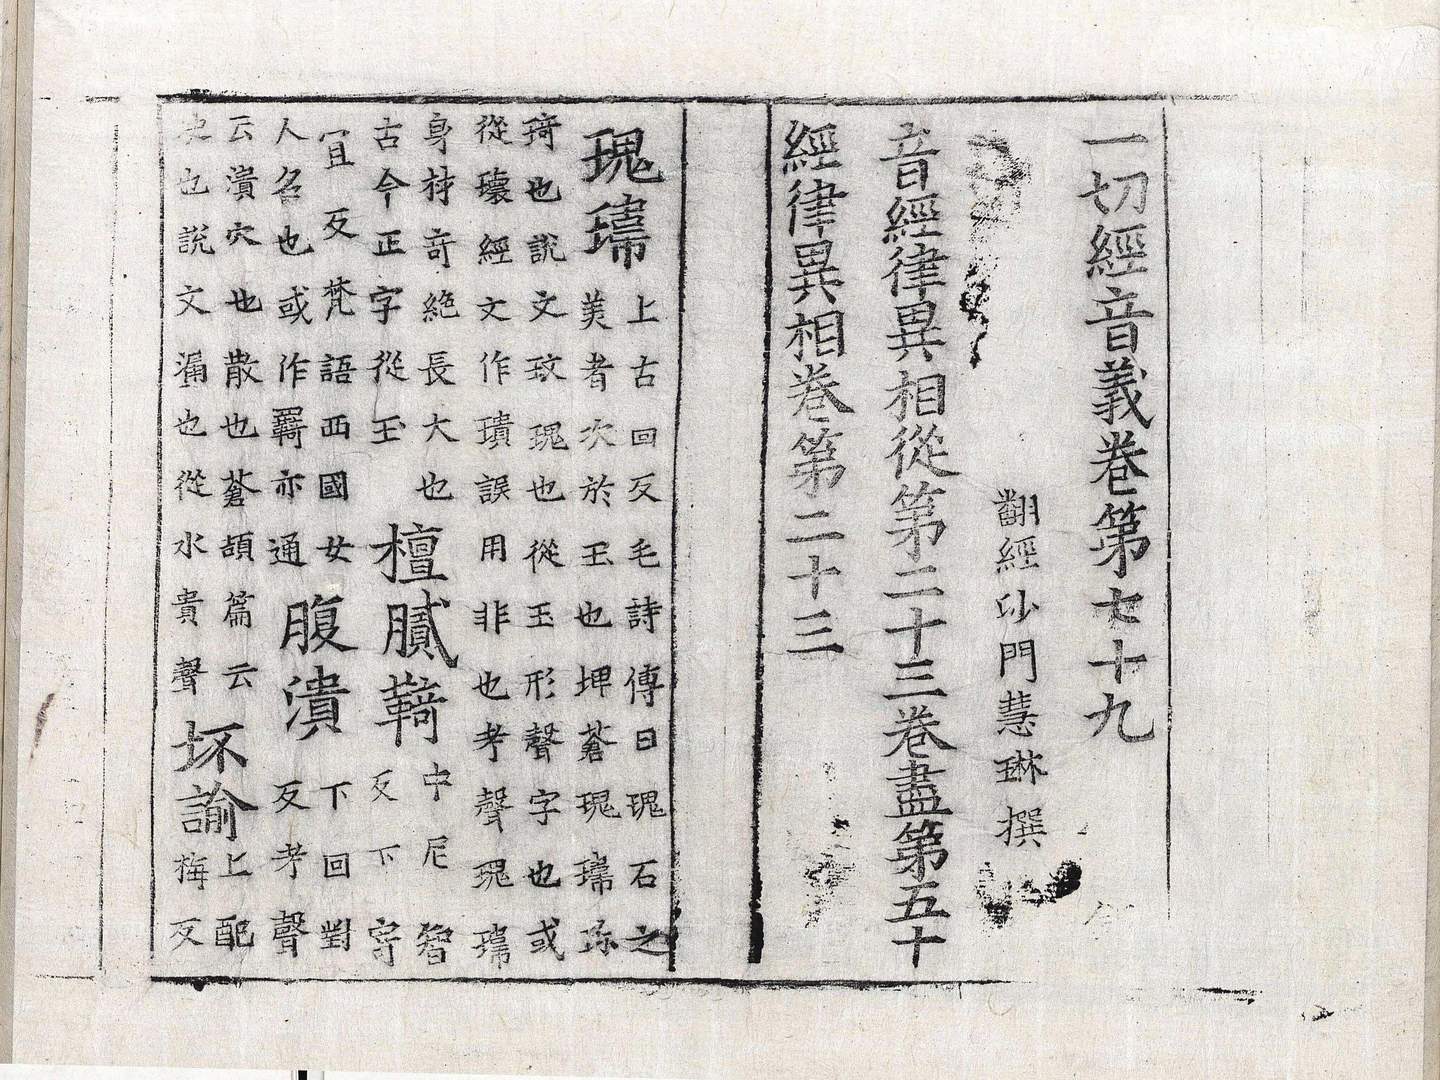 一切經音義卷第七十九
翻經沙門慧琳撰
音經律異相從第二十三卷盡第五十
經律異相卷第二十三
瑰瑋
上古回反毛詩傳曰瑰石之
美者次於玉也埤蒼瑰瑋珎
琦也說文玟瑰也從玉形聲字也或
從瓌經文作璝誤用非也考聲瑰瑋
身持奇絶長大也
古今正字從玉
檀膩䩭
中尼智
反下寄
冝反梵語西國女
人名也或作羇亦通
腹潰
下回對
反考聲
云潰穴也散也蒼頡篇云
也說文漏也從水貴聲
坏諭
上配
梅反